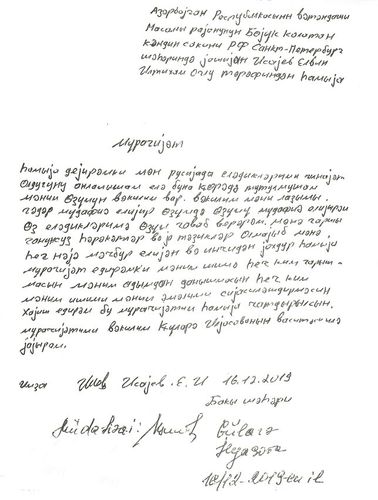 Азәрбајҹан Республикасынын вәтәндашы
Масаллы рајонунун Бөјүк Колатан
кәндин сакини РФ Санкт-Петербург
шәһәриндә јашајан Исајев Елвин
Илтихам Оғлу тәрәфиндән һамыја
Мурачијәт
һамыја дејирәмки мән русијада еләдикләрим ҹинајәт
Олдуғуну анламышам елә буна көрәдә тутулмушам
мәним өзүмүн вәкилим вар. вәкилим мәни лазымы
гәдәр мудафиә елијир өзүмдә өзүмү мудафиә елијирәм
Өз еләдикләримә өзүм ҹаваб верәрәм. мәнә гаршы
ганунсуз һәрәкәтләр вә тәзјигләр Олмајыб мәнә
һеч нәјә мәҹбур елијән вә инҹидән јохдур һамыја
мурачијәт едирәмки мәним ишимә һеч ким гарыш-
масын мәним адымдан данышмасын һеч ким
мәним ишими мәним әмәлими сијасиләшдирмәсин
Хаһиш едирәм бу мурачијәтими һамыја чатдырысын.
мурачијәтими вәкилим Күларә Иљјасованын васитәсилә
јазырам.
имза Исајев. Е. И 16.12.2019
Бакы шәһәри
Müdafiəçi:
16/12-2019-cu il